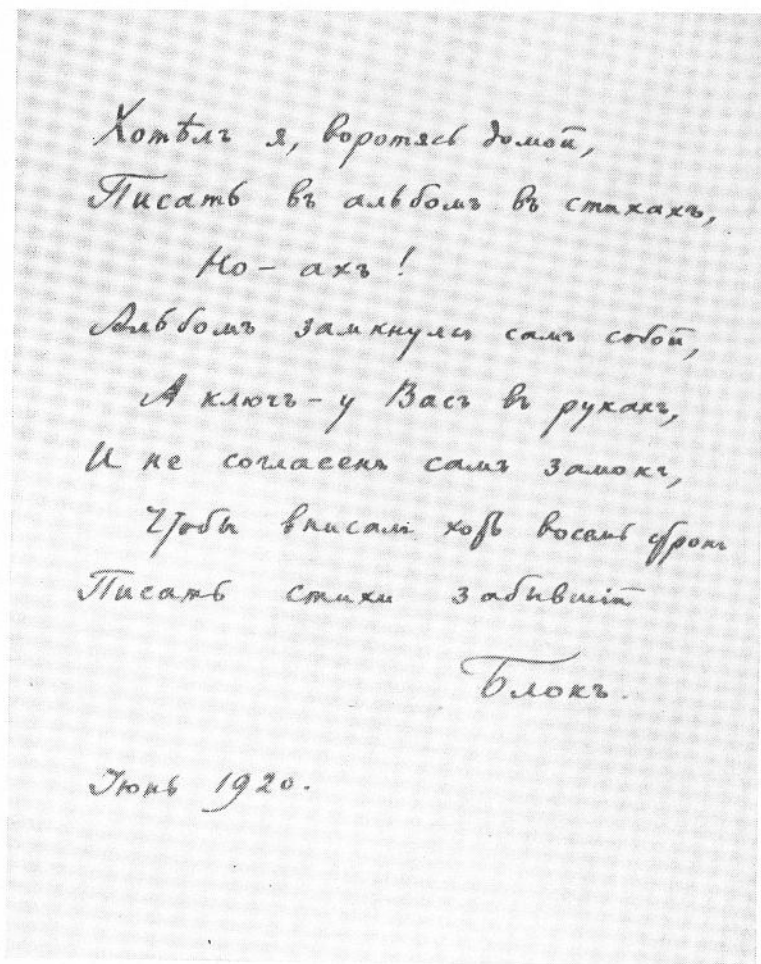 Хотѣлъ я, воротясь домой,
Писать въ альбомъ въ стихахъ,
Но – ахъ!
Альбомъ замкнулся самъ собой,
А ключъ – у Васъ въ рукахъ,
И не согласенъ самъ замокъ,
Чтобы вписалъ хоть восемь строкъ
Писать стихи забывшій
Блокъ.
Іюнь 1920.